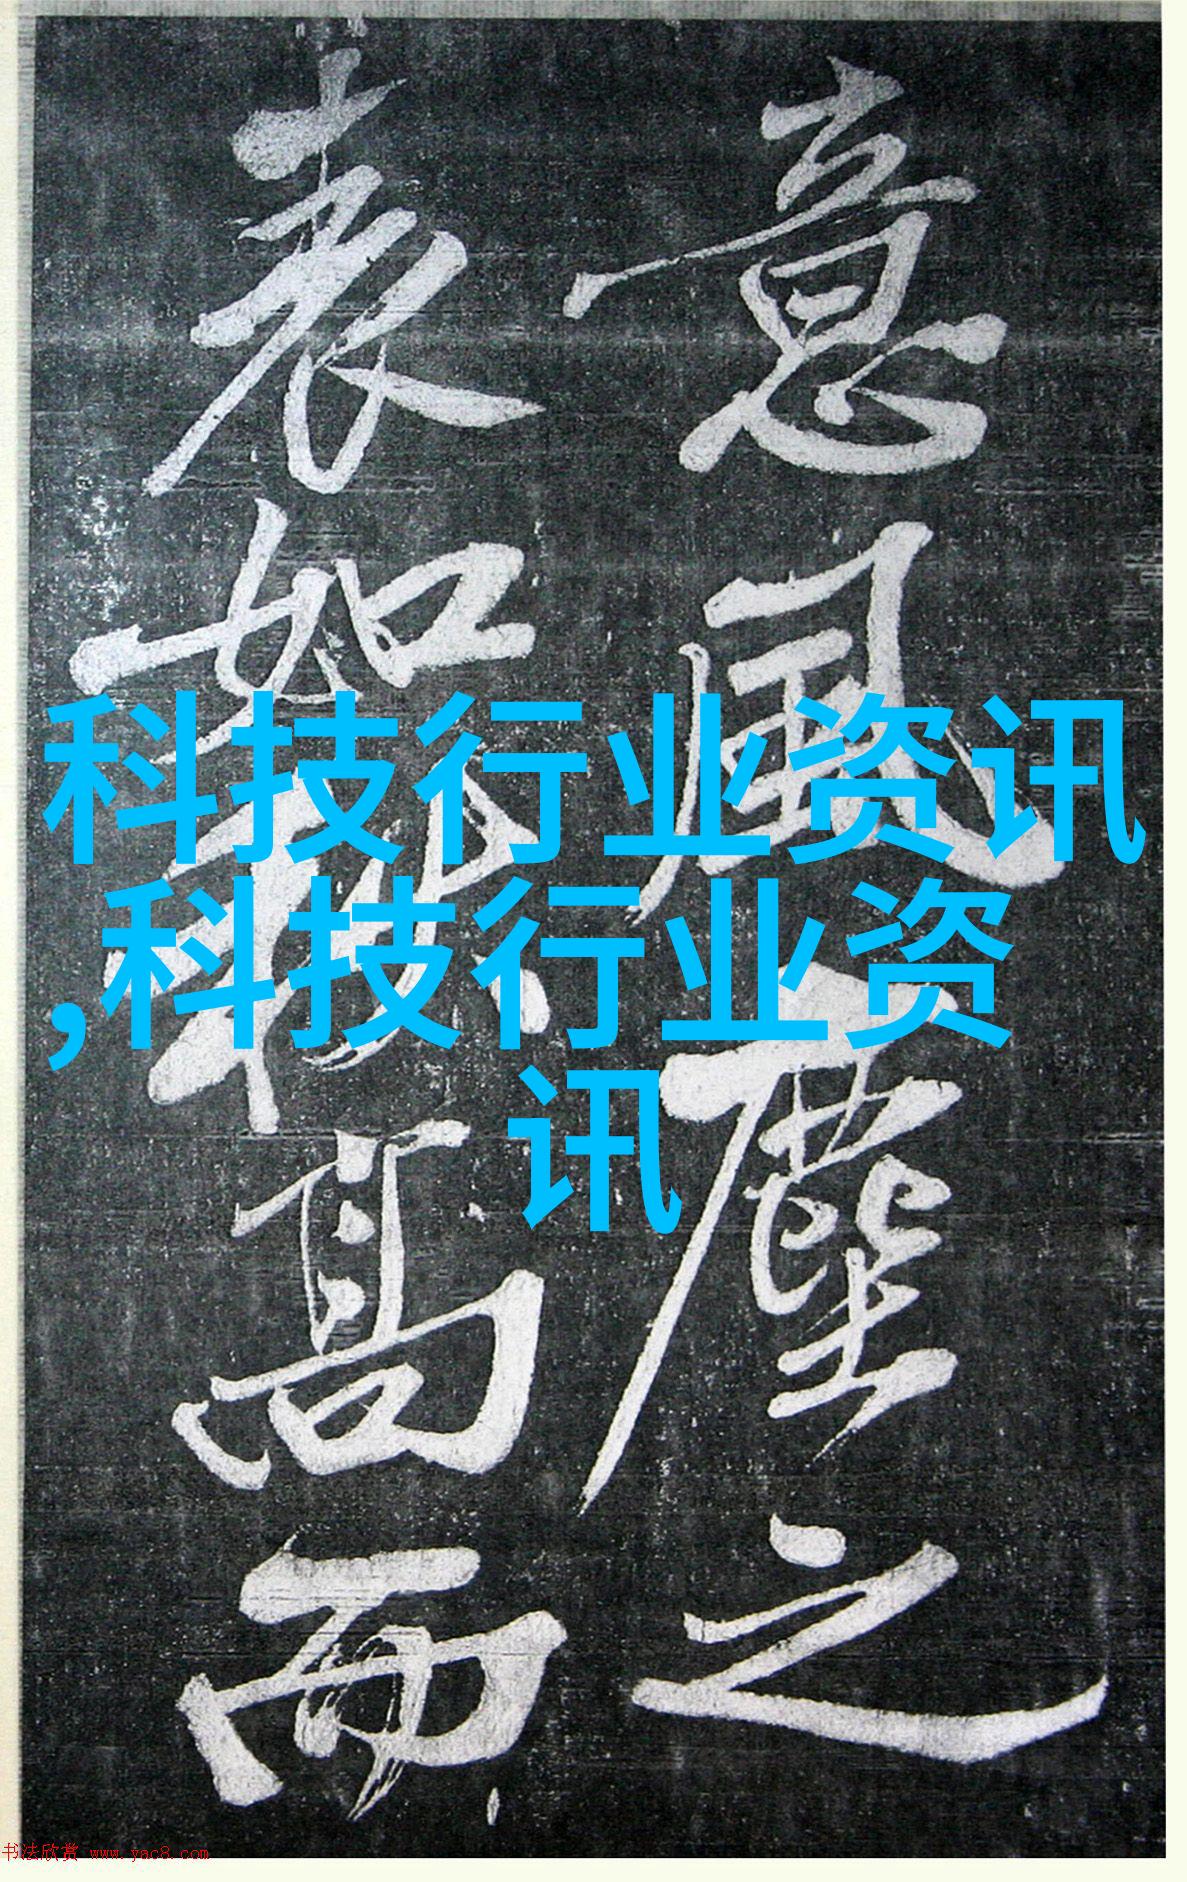 意風塵之
表如高而
科技行业资讯
,科技行业资
讯
书法欣赏 www.yac8.com